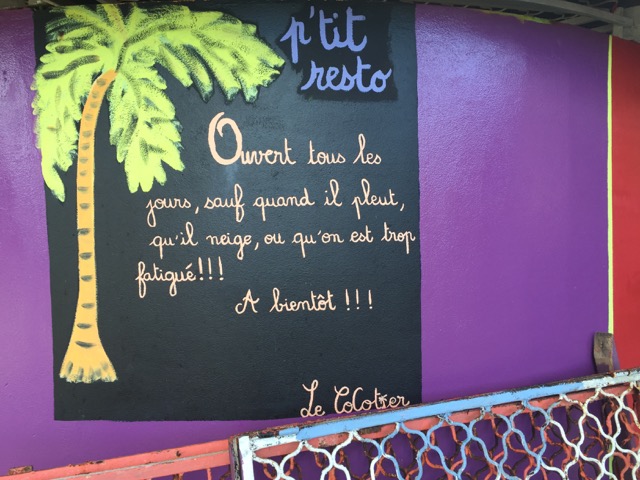 p'tit
resto
Ouvert tous les
jours, sauf quand il pleut,
qu'il neige, ou qu'on est trop
fatigué!!!
A bientôt !!!
Le CoCotier